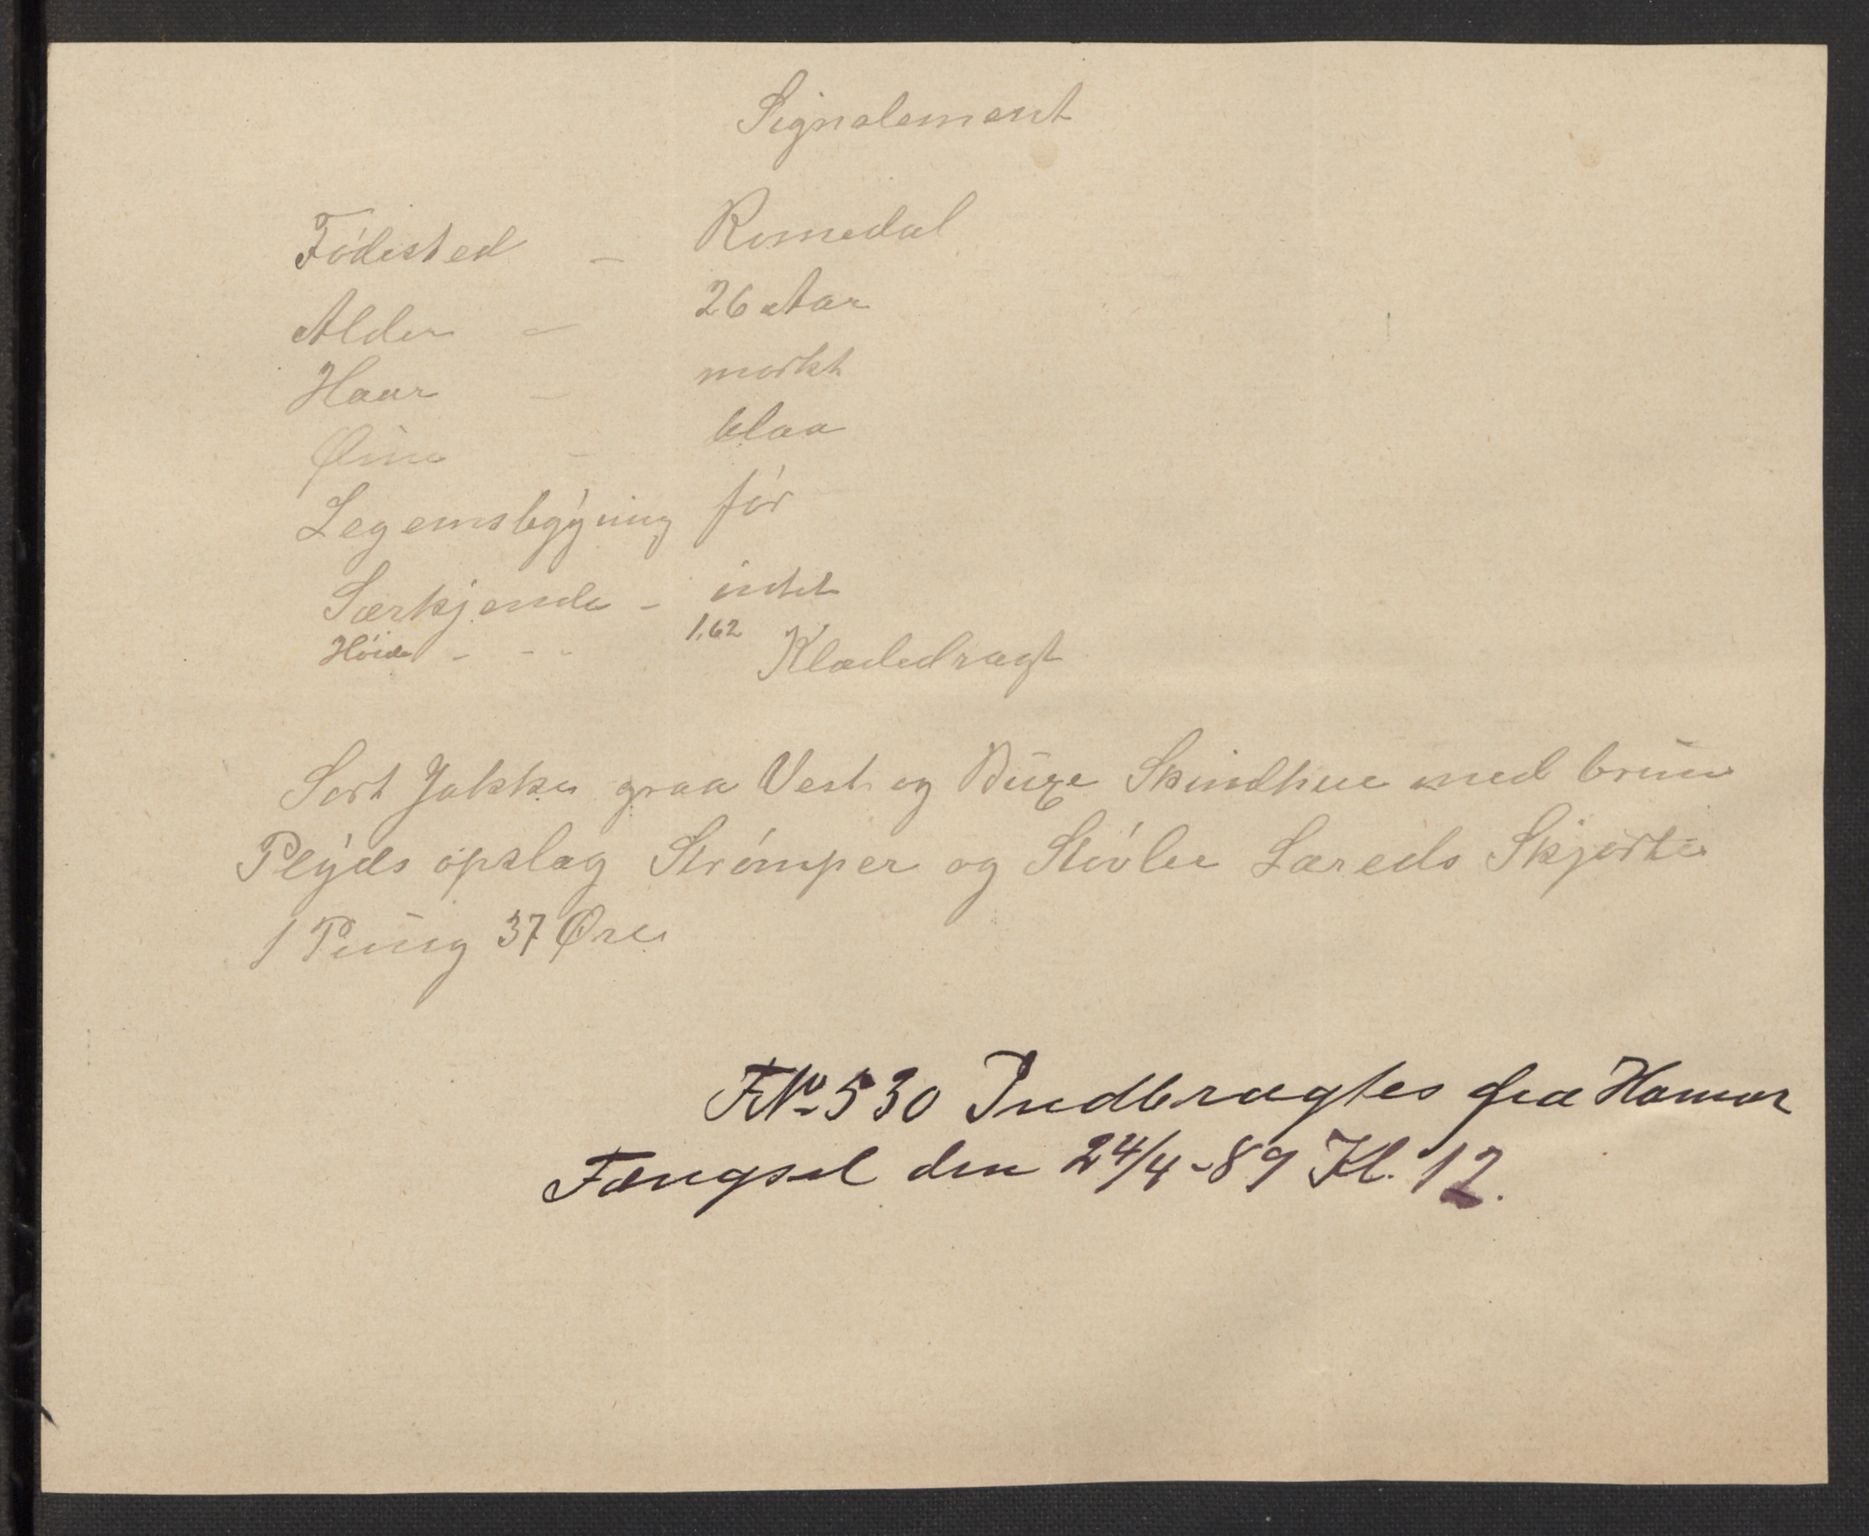 Signalement
Fødested – Romedal
Alder – 26 Aar
Haar – mørkt
Øine – blaa
Legemsbygning før
Særkjende – intet
Høide – - - 1,62
Klædedragt
Sort Jakke graa Vest og Buxe Skindhue med brun
Plyds opslag Strømper og Støvler Læreds Skjorte
1 Pung 37 Øre
FNo 530 Indbragtes fra Hamar
Fængsel den 24/4-89 Kl. 12.